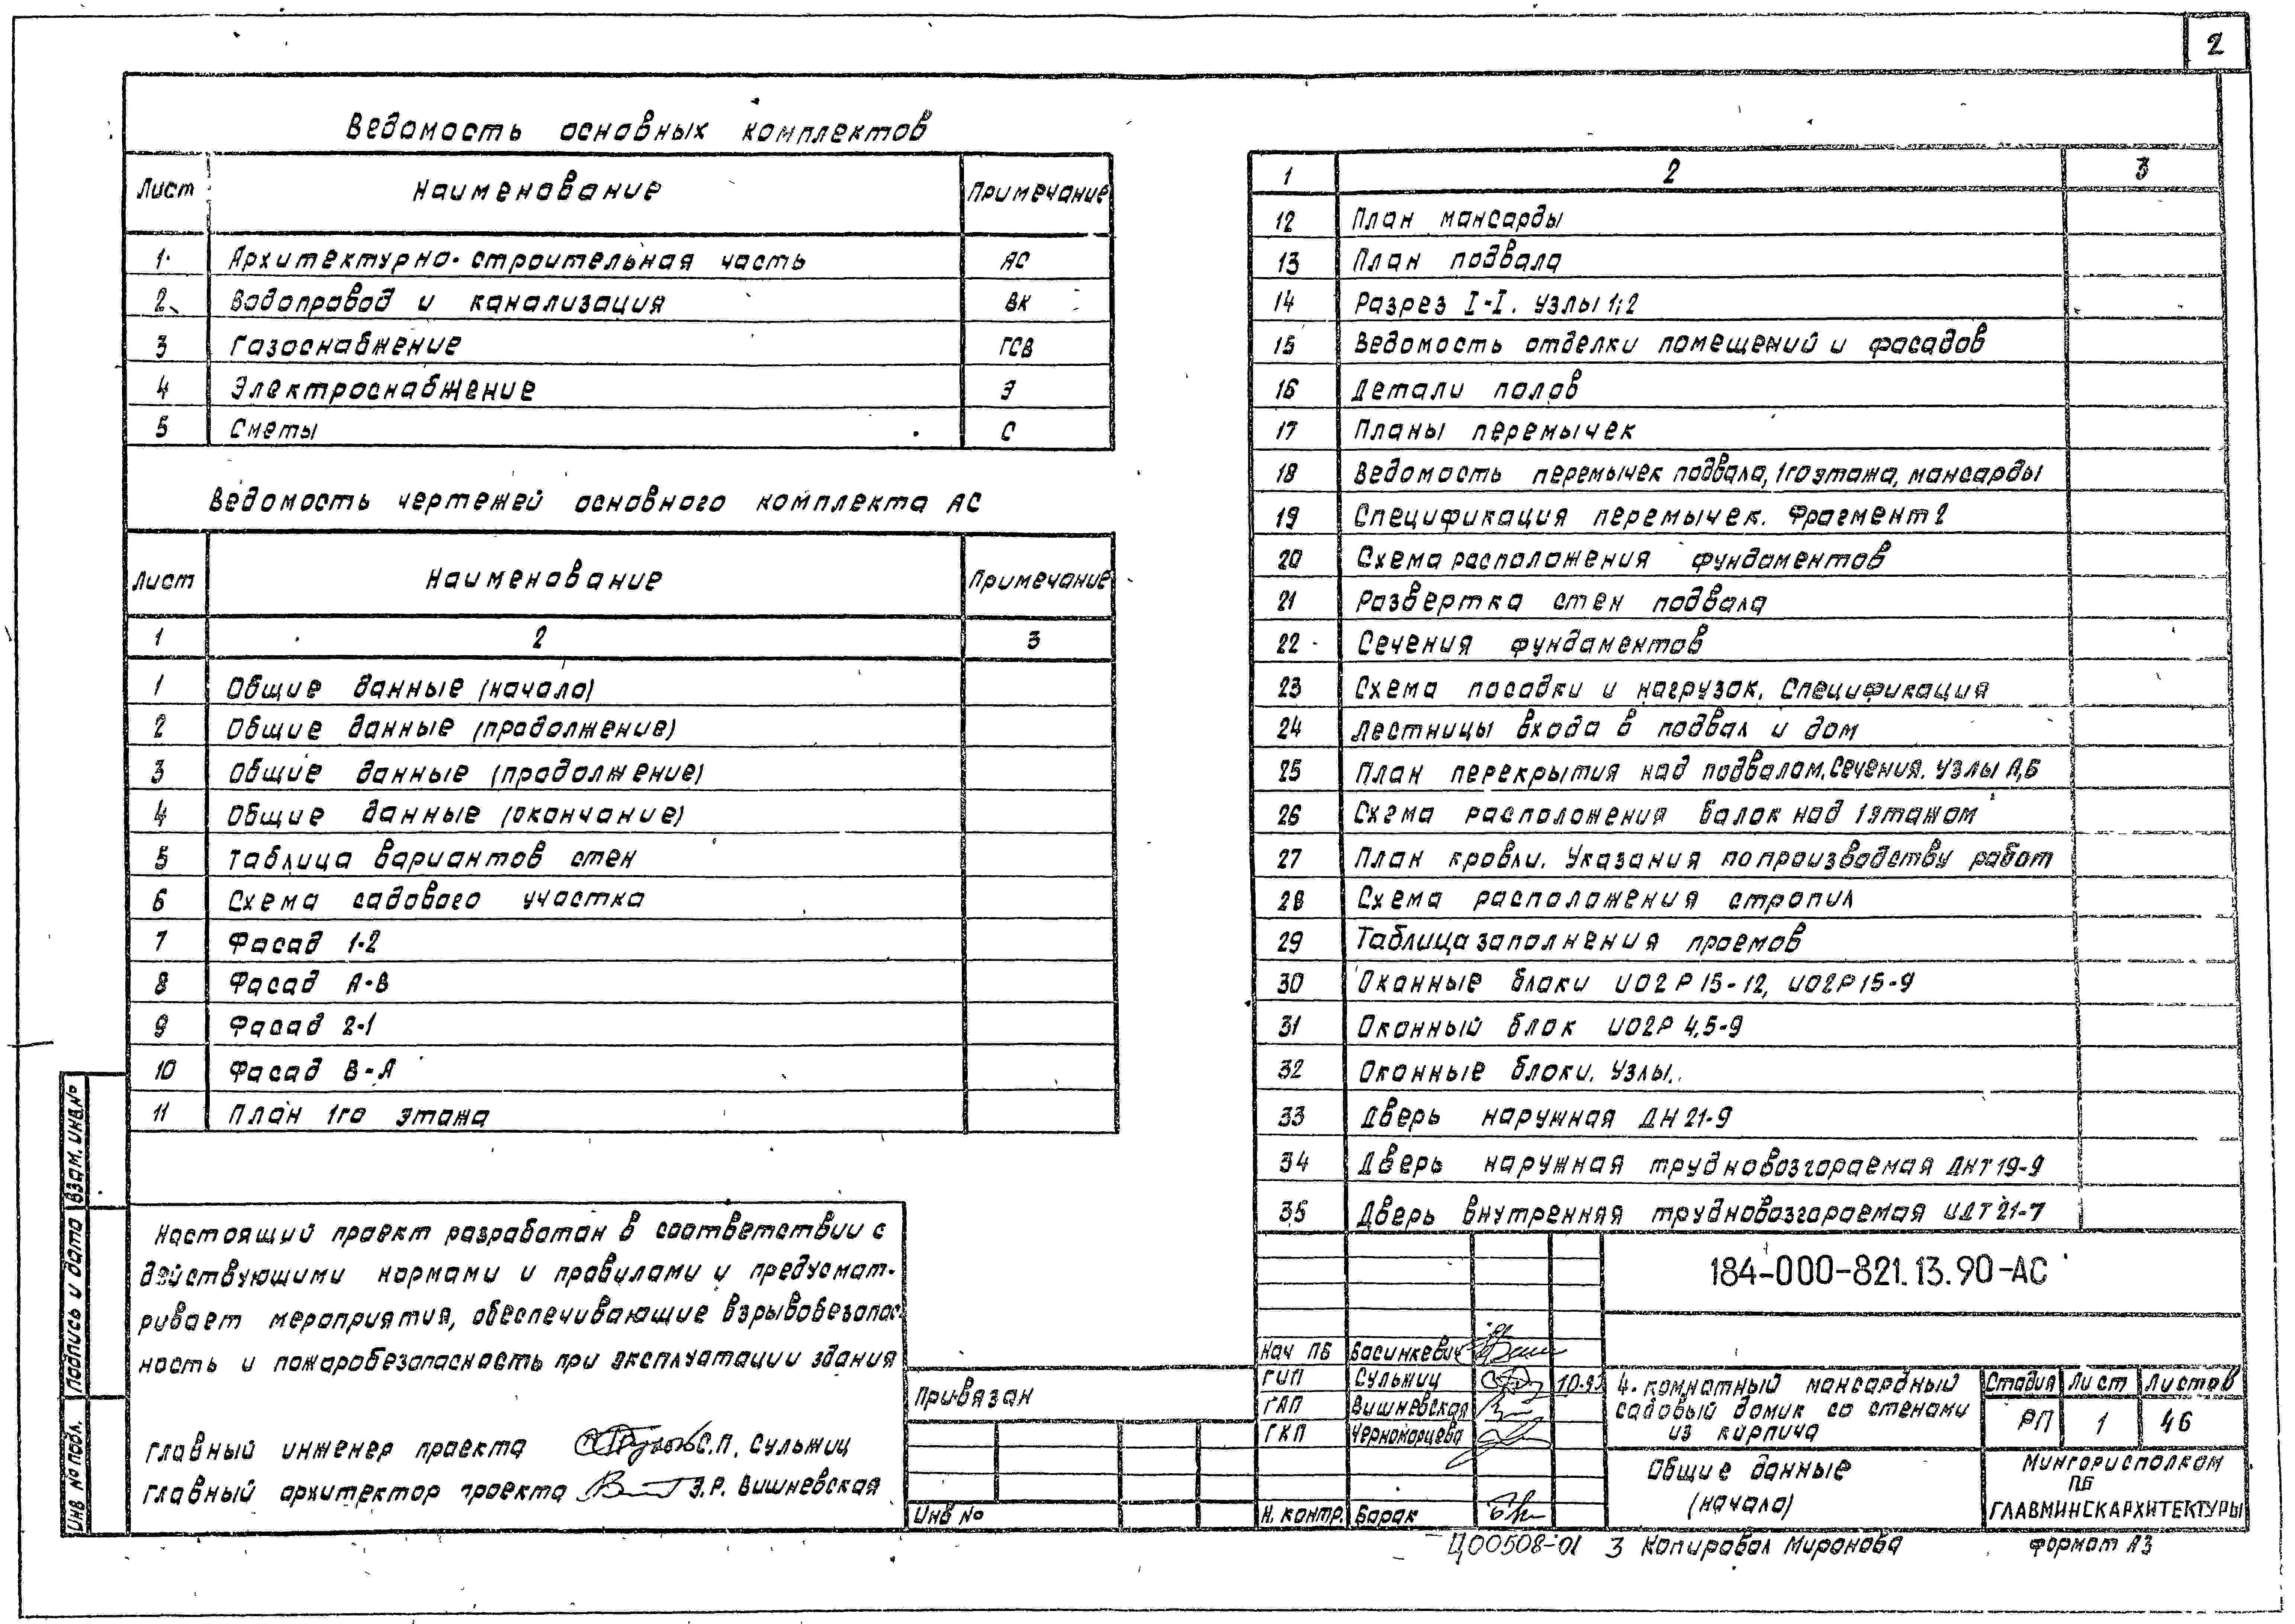 2
Ведомость основных комплектов
Лист Наименование Примечание
1. Архитектурно-строительная часть АС
2 Водопровод и канализация ВК
3 Газоснабжение ГСВ
4 Электроснабжение Э
5 Сметы С
Ведомость чертежей основного комплекта АС
Лист Наименование Примечание
1 2 3
1 Общие данные (начало)
2 Общие данные (продолжение)
3 Общие данные (продолжение)
4 Общие данные (окончание)
5 Таблица вариантов стен
6 Схема садового участка
7 Фасад 1-2
8 Фасад А-В
9 Фасад 2-1
10 Фасад В-А
11 План 1го этажа
1 2 3
12 План мансарды
13 План подвала
14 Разрез I-I. Узлы 1;2
15 Ведомость отделки помещений и фасадов
16 Детали полов
17 Планы перемычек
18 Ведомость перемычек подвала, 1го этажа, мансарды
19 Спецификация перемычек. Фрагмент 2
20 Схема расположения фундаментов
21 Развертка стен подвала
22 Сечения фундаментов
23 Схема посадки и нагрузок. Спецификация
24 Лестницы входа в подвал и дом
25 План перекрытия над подвалом. Сечения. Узлы А,Б
26 Схема расположения балок над 1 этажом
27 План кровли. Указания по производству работ
28 Схема расположения стропил
29 Таблица заполнения проемов
30 Оконные блоки ИО2Р 15-12, ИО2Р 15-9
31 Оконный блок ИО2Р 4,5-9
32 Оконные блоки. Узлы.
33 Дверь наружная ДН 21-9
34 Дверь наружная трудновозгораемая ДНТ 19-9
35 Дверь внутренняя трудновозгораемая ИДТ 21-7
Настоящий проект разработан в соответствии с
действующими нормами и правилами и предусмат-
ривает мероприятия, обеспечивающие взрывобезопас-
ность и пожаробезопасность при эксплуатации здания
Главный инженер проекта С.П. Сульжиц
Главный архитектор проекта Э.Р. Вишневская
Привязан
Инв №
184-000-821.13.90-АС
Нач ПБ Басинкевич
ГИП Сульжиц
ГАП Вишневская
ГКП Черноморцева
Н. контр. Барак
4-комнатный мансардный
садовый домик со стенами
из кирпича
Стадия Лист Листов
РП 1 46
Общие данные
(начало)
Мингорисполком
ПБ
ГЛАВМИНСКАРХИТЕКТУРЫ
Ц00508-01 3 Копировал Миронова формат А3
Инв № подл. Подпись и дата Взам. инв. №